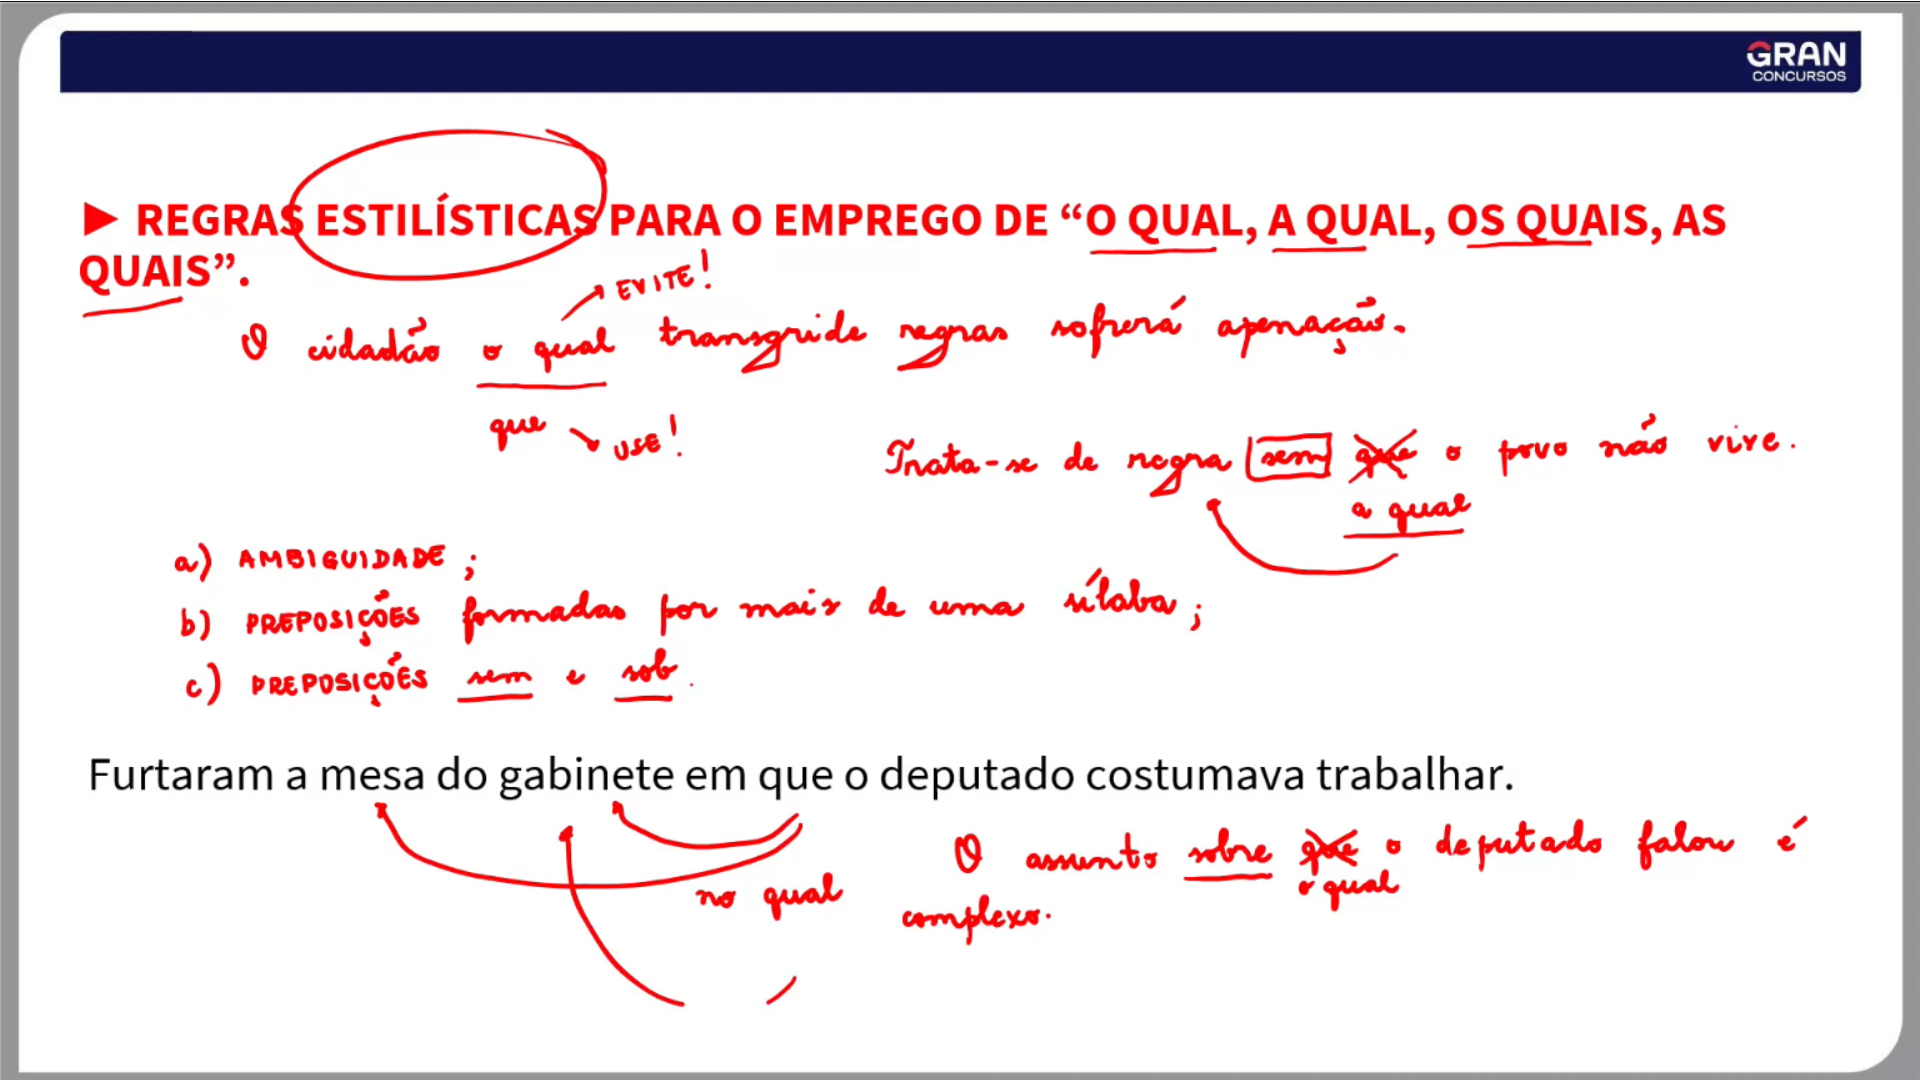 GRAN
CONCURSOS
► REGRAS ESTILÍSTICAS PARA O EMPREGO DE “O QUAL, A QUAL, OS QUAIS, AS
QUAIS”.
EVITE!
O cidadão o qual transgride regras sofrerá apenação.
que
USE!
Trata-se de regra sem que o povo não vive.
a qual
a) AMBIGUIDADE;
b) PREPOSIÇÕES formadas por mais de uma sílaba;
c) PREPOSIÇÕES sem e sob.
Furtaram a mesa do gabinete em que o deputado costumava trabalhar.
no qual
O assunto sobre que o deputado falou é
o qual
complexo.